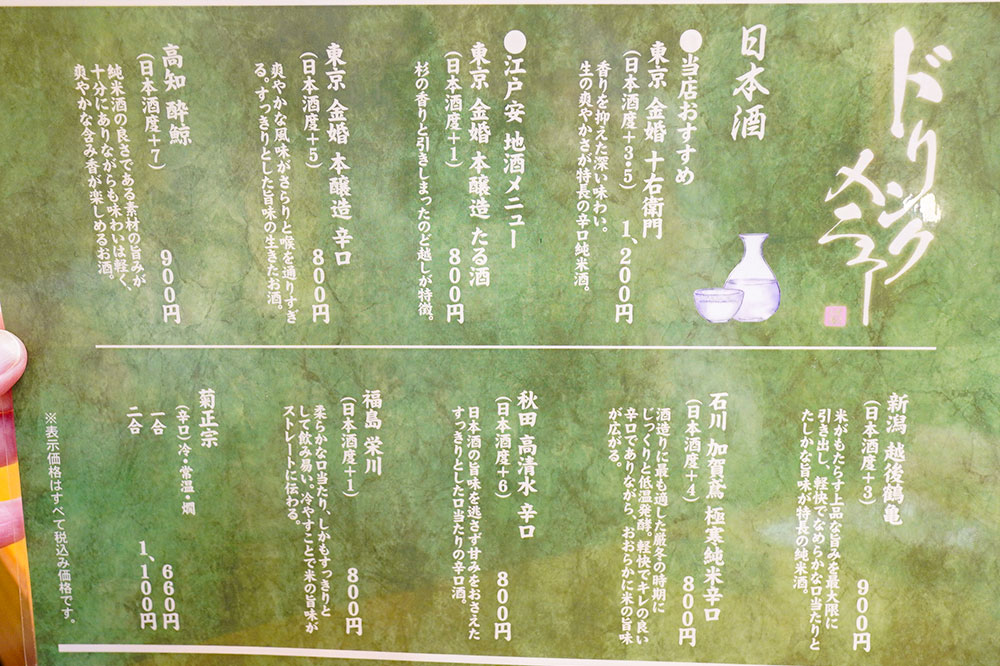 ドリンクメニュー
日本酒
●当店おすすめ
東京 金婚 十右衛門
(日本酒度+3·5) 1,200円
香りを抑えた深い味わい。
生の爽やかさが特長の辛口純米酒。
●江戸安 地酒メニュー
東京 金婚 本醸造 たる酒
(日本酒度+1) 800円
杉の香りと引きしまったのど越しが特徴。
東京 金婚 本醸造 辛口
(日本酒度+5) 800円
爽やかな風味がさらりと喉を通りすぎ
る。すっきりとした旨味の生きたお酒。
高知 酔鯨
(日本酒度+7) 900円
純米酒の良さである素材の旨みが
十分にありながらも味わいは軽く、
爽やかな含み香が楽しめるお酒。
新潟 越後鶴亀
(日本酒度+3) 900円
米がもたらす上品な旨みを最大限に
引き出し、軽快でなめらかな口当たりと
たしかな旨味が特長の純米酒。
石川 加賀鳶 極寒純米辛口
(日本酒度+4) 800円
酒造りに最も適した厳冬の時期に
じっくりと低温発酵。軽快でキレの良い
辛口でありながら、おおらかに米の旨味
が広がる。
秋田 高清水 辛口
(日本酒度+6) 800円
日本酒の旨味を逃さず甘みをおさえた
すっきりとした口当たりの辛口酒。
福島 栄川
(日本酒度+1) 800円
柔らかな口当たり、しかもすっきりと
して飲み易い。冷やすことで米の旨味が
ストレートに伝わる。
菊正宗
(辛口)冷・常温・燗
一合 660円
二合 1,100円
※表示価格はすべて税込み価格です。